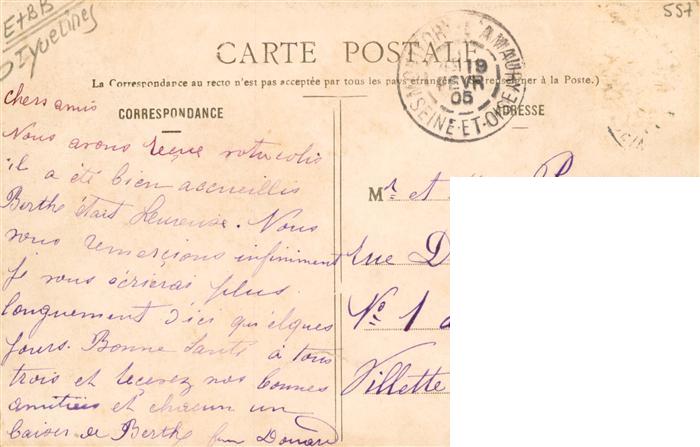 E+BB
Yvelines
557
CARTE POSTALE
19
FEVR
05
SEINE-ET-OISE
(La Correspondance au recto n'est pas acceptée par tous les pays étrangers. Se renseigner à la Poste.)
CORRESPONDANCE
ADRESSE
chers amis
Nous avons reçue votre colis
il a été bien accueillis
Berthe était heureuse. Nous
vous remerçions infiniment
je vous écrierai plus
longuement d'ici quelques
jours. Bonne Santé à tous
trois et recevez nos bonnes
amitiées et chacun un
baiser de Berthe
Mr et
rue D
No 1
Villette